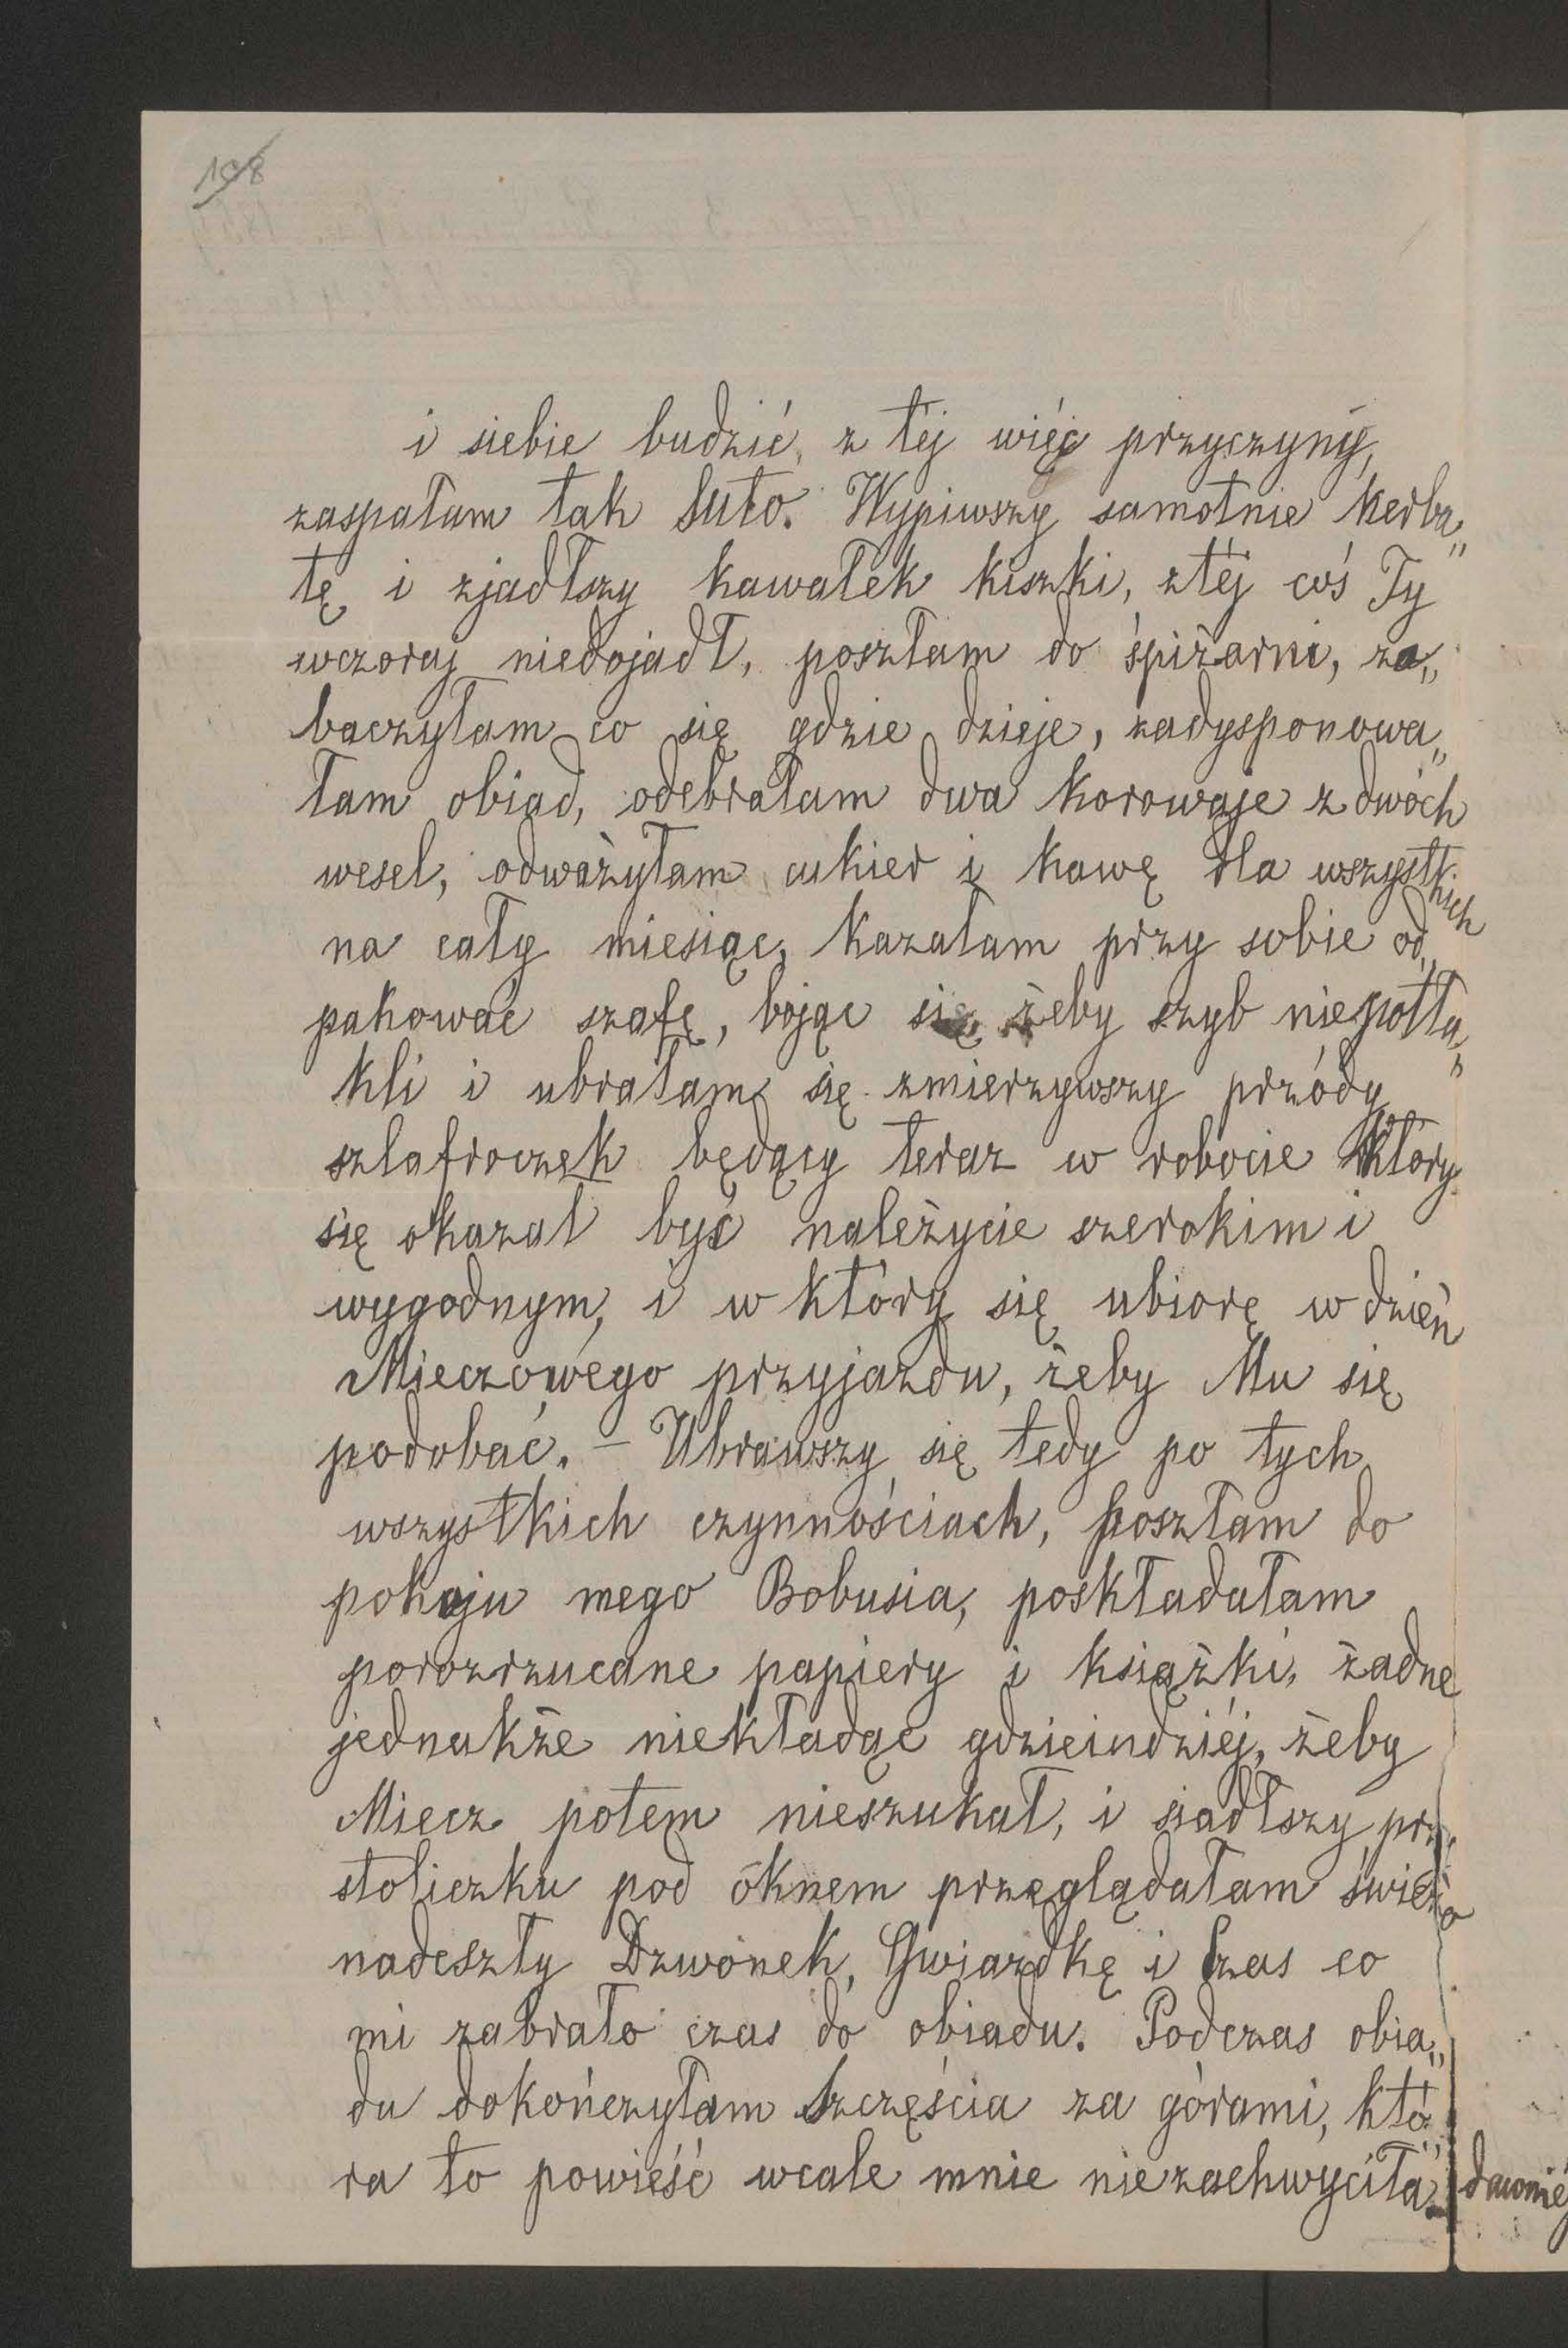 198
i siebie budzić, z téj więc przyczyny,
zaspałam tak suto. Wypiwszy samotnie herba„
tę i zjadłszy kawałek kiszki, ztéj coś Ty
wczoraj niedojadł, poszłam do śpiżarni, za„
baczyłam co się gdzie dzieje, zadysponowa„
łam obiad, odebrałam dwa korowaje z dwóch
wesel, odważyłam cukier i kawę dla wszystkich
na cały miesiąc, kazałam przy sobie od„
pakować szafę, bojąc się żeby szyb niepotła„
kli i ubrałam się zmierzywszy przódy
szlafroczek będący teraz w robocie który
się okazał być należycie szerokim i
wygodnym, i w który się ubiorę w dzień
Mieczowego przyjazdu, żeby Mu się
podobać. – Ubrawszy się tedy po tych
wszystkich czynnościach, poszłam do
pokoju mego Bobusia, poskładałam
porozrzucane papiery i książki, żadne
jednakże niekładąc gdzieindziéj, żeby
Miecz potem nieszukał, i siadłszy przy
stoliczku pod oknem przeglądałam świeżo
nadeszły Dzwonek, Gwiazdkę i Czas co
mi zabrało czas do obiadu. Podczas obia„
du dokończyłam Szczęścia za górami, któ„
ra to powieść wcale mnie niezachwyciła.